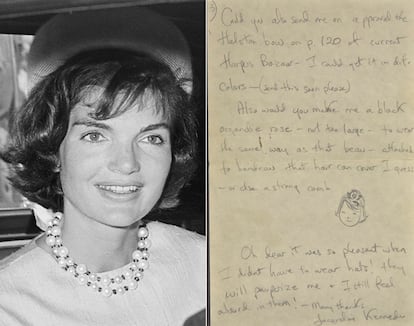 ③
Could you also send me on approval the
Halston bow on p. 120 of current
Harpers Bazaar – I could get it in dif-
colors – (send this soon please)
Also would you make me a black
organdie rose – not too large – to wear
the same way as that bow – attached
to bandeau that hair can cover I guess
– or else a strong comb
Oh dear it was so pleasant when
I didn't have to wear hats! They
will pauperize me & I still feel
absurd in them! – Many thanks
Jacqueline Kennedy